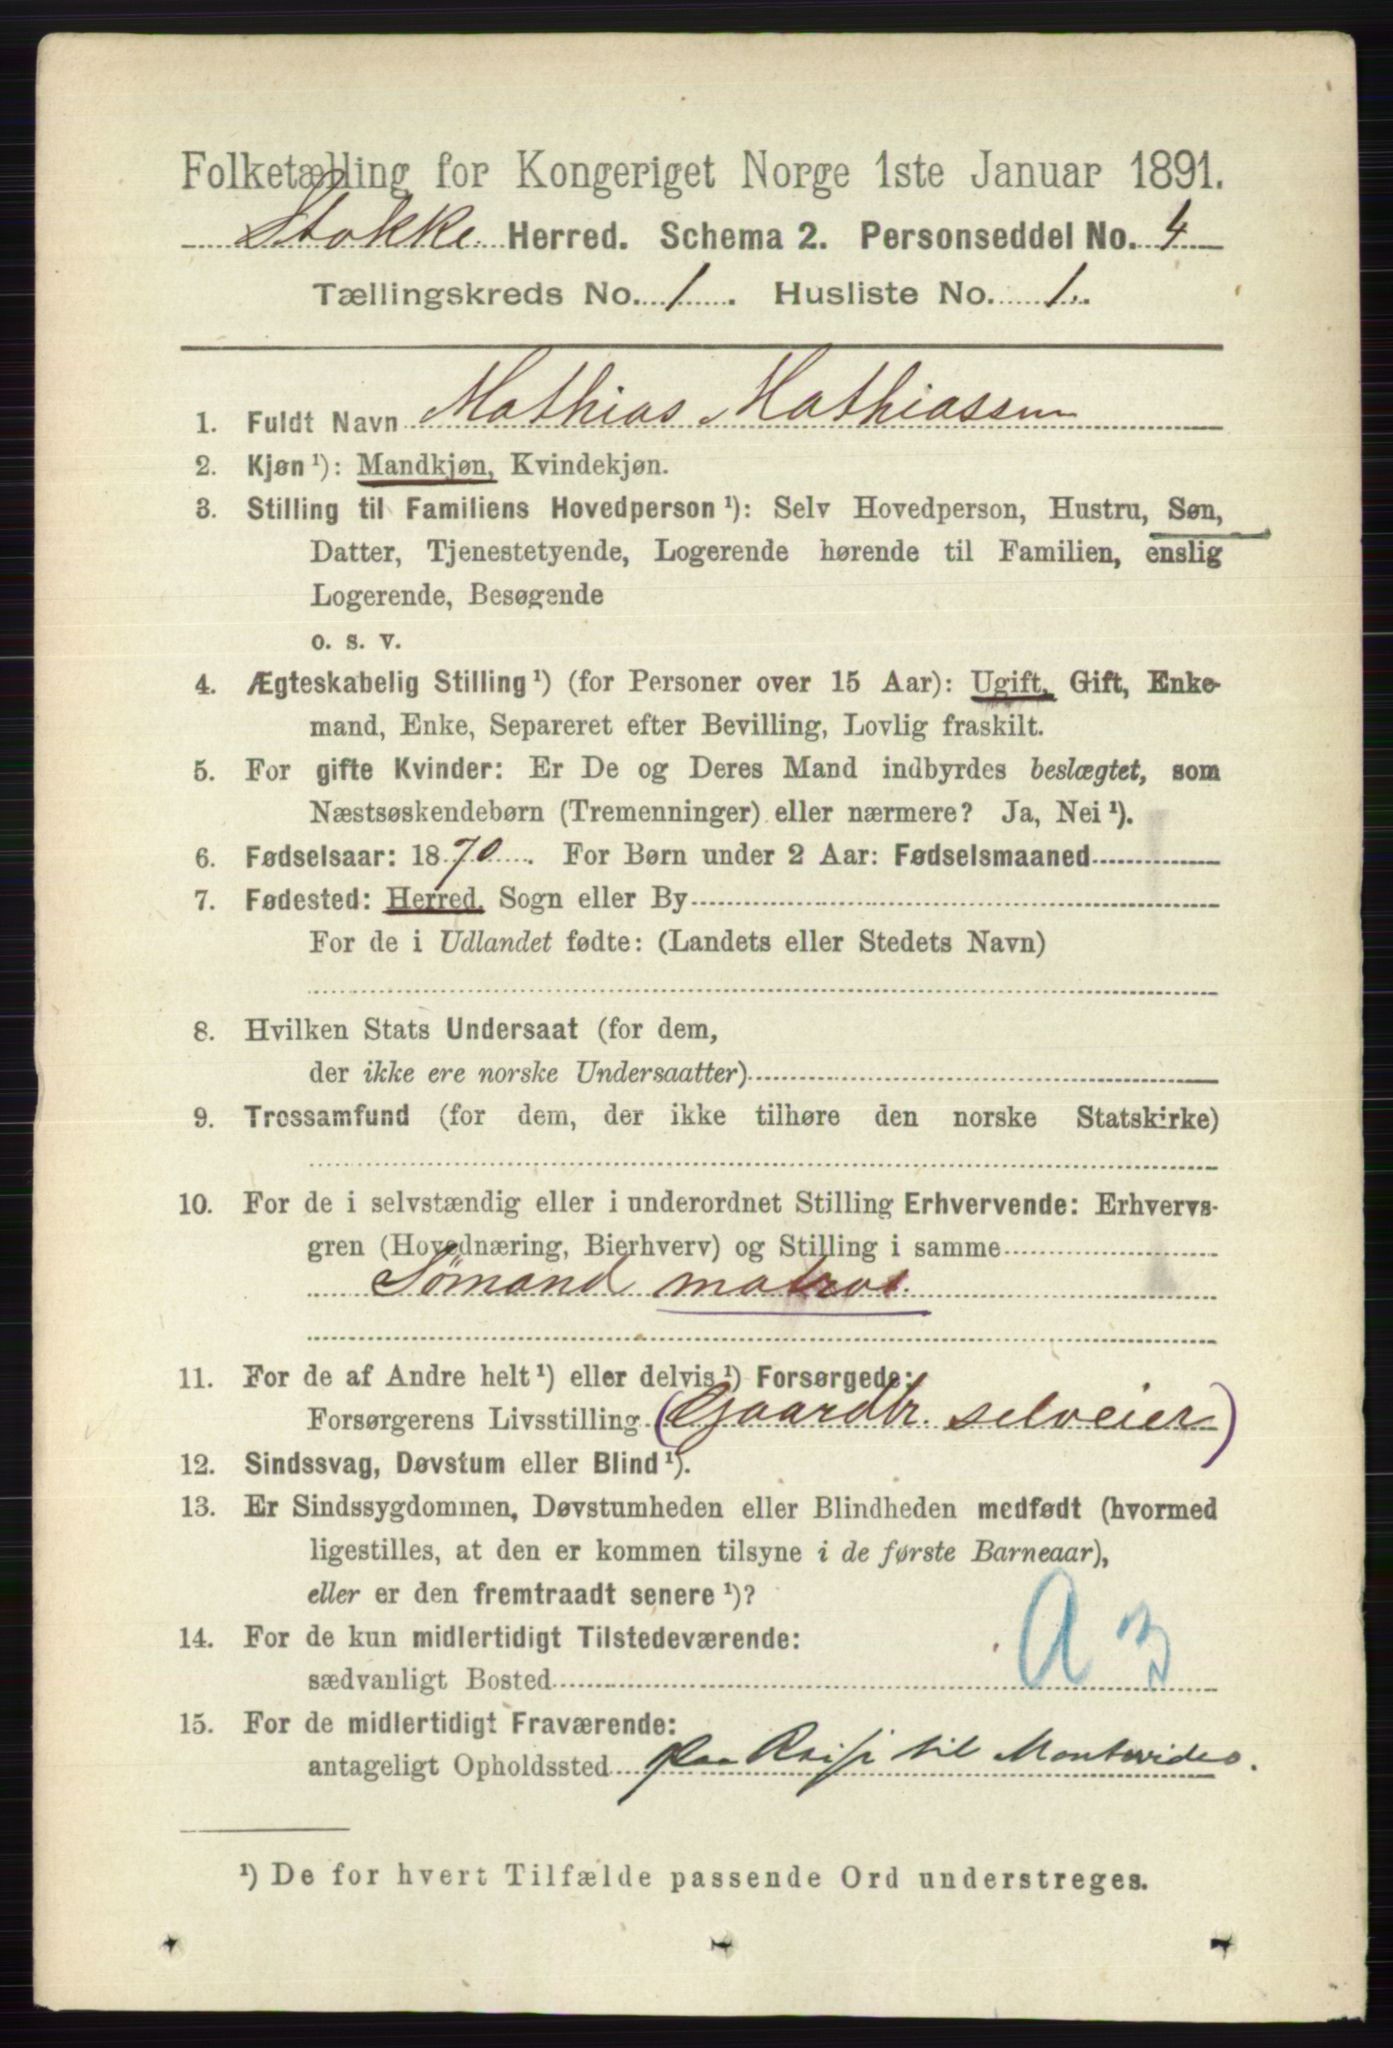 Folketælling for Kongeriget Norge 1ste Januar 1891.
Stokke Herred. Schema 2. Personseddel No. 4
Tællingskreds No. 1. Husliste No. 1.
1. Fuldt Navn Mathias Mathiassen
2. Kjøn ¹): Mandkjøn, Kvindekjøn.
3. Stilling til Familiens Hovedperson ¹): Selv Hovedperson, Hustru, Søn,
Datter, Tjenestetyende, Logerende hørende til Familien, enslig
Logerende, Besøgende
o. s. v.
4. Ægteskabelig Stilling ¹) (for Personer over 15 Aar): Ugift, Gift, Enke-
mand, Enke, Separeret efter Bevilling, Lovlig fraskilt.
5. For gifte Kvinder: Er De og Deres Mand indbyrdes beslægtet, som
Næstsøskendebørn (Tremenninger) eller nærmere? Ja, Nei ¹).
6. Fødselsaar: 1870. For Børn under 2 Aar: Fødselsmaaned
7. Fødested: Herred, Sogn eller By
For de i Udlandet fødte: (Landets eller Stedets Navn)
8. Hvilken Stats Undersaat (for dem,
der ikke ere norske Undersaatter)
9. Trossamfund (for dem, der ikke tilhøre den norske Statskirke)
10. For de i selvstændig eller i underordnet Stilling Erhvervende: Erhvervs-
gren (Hovednæring, Bierhverv) og Stilling i samme
Sømand matros.
11. For de af Andre helt ¹) eller delvis ¹) Forsørgede:
Forsørgerens Livsstilling (Gaardbr. selveier)
12. Sindssvag, Døvstum eller Blind ¹).
13. Er Sindssygdommen, Døvstumheden eller Blindheden medfødt (hvormed
ligestilles, at den er kommen tilsyne i de første Barneaar),
eller er den fremtraadt senere ¹)?
A 3
14. For de kun midlertidigt Tilstedeværende:
sædvanligt Bosted
15. For de midlertidigt Fraværende:
antageligt Opholdssted paa Reise til Montevideo.
¹) De for hvert Tilfælde passende Ord understreges.